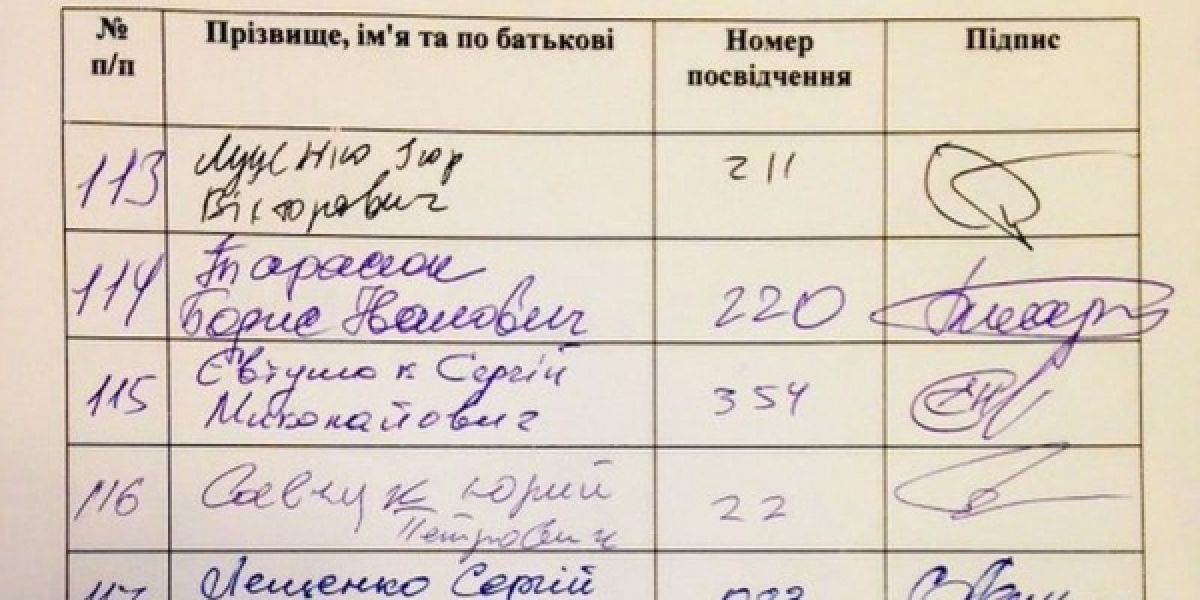 № п/п Прізвище, ім'я та по батькові Номер посвідчення Підпис
113 Луценко Ігор Вікторович 211
114 Тарасюк Борис Іванович 220
115 Євтушок Сергій Миколайович 354
116 Савчук Юрий Петрович 22
117 Лещенко Сергій